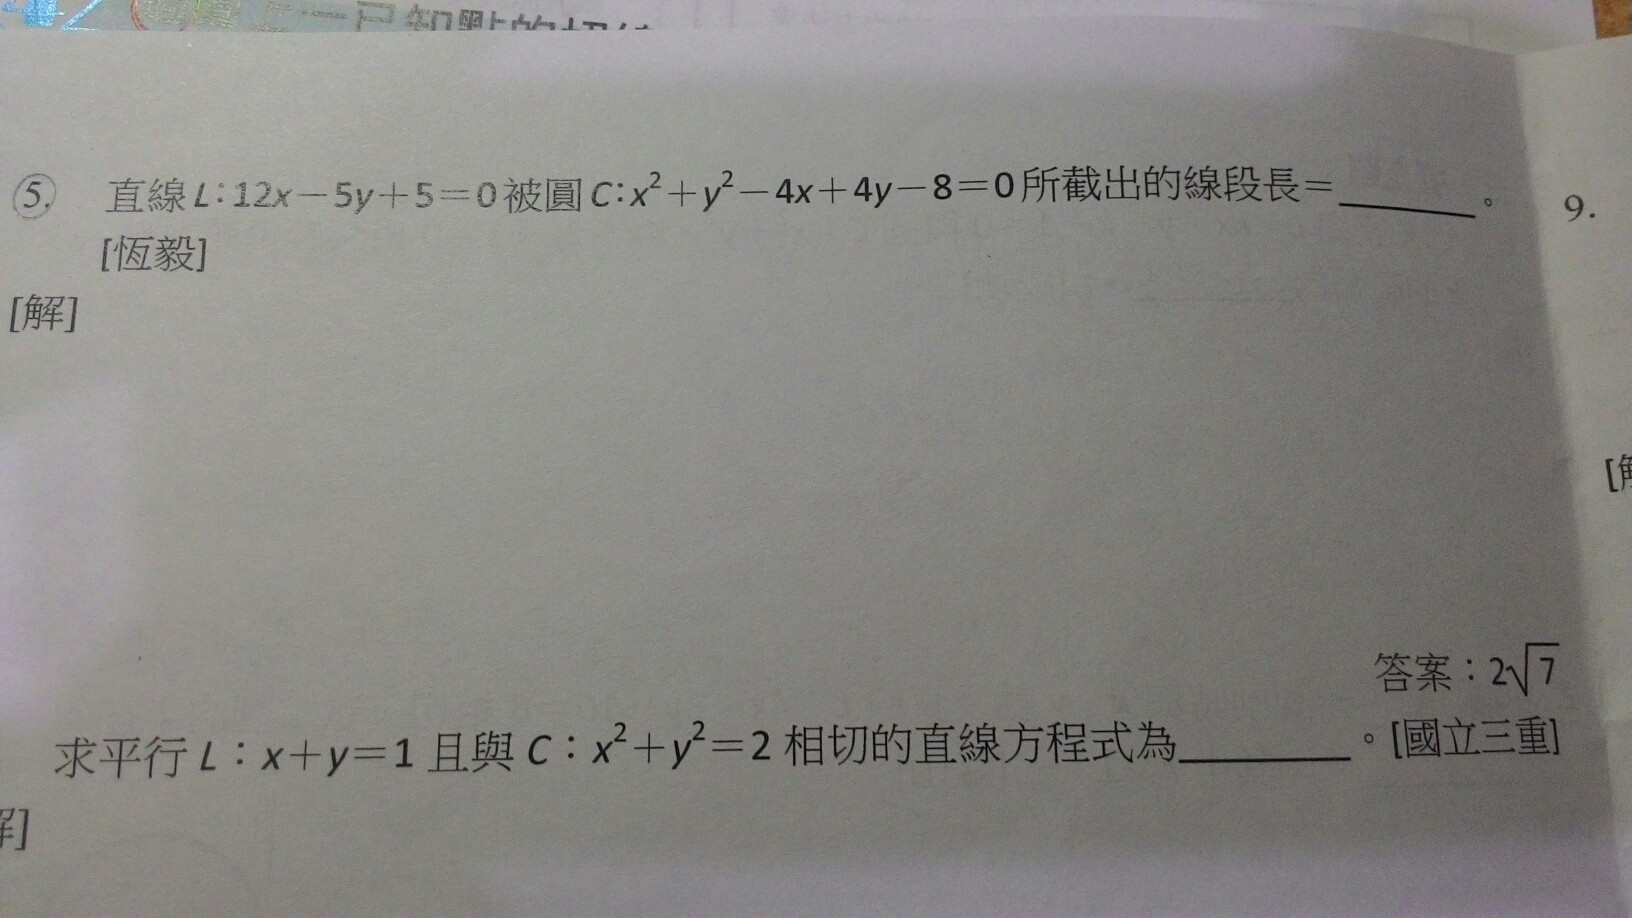 已知點的切線
5. 直線 L:12x－5y＋5＝0 被圓 C:x²＋y²－4x＋4y－8＝0 所截出的線段長＝______。
[恆毅]
[解]
答案：2√7
求平行 L：x＋y＝1 且與 C：x²＋y²＝2 相切的直線方程式為______。[國立三重]
解]
9.